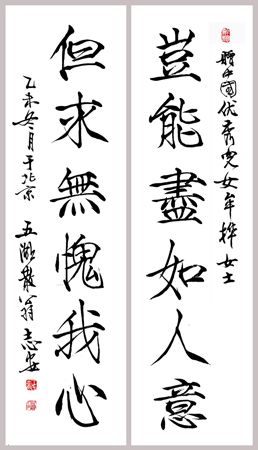 豈能盡如人意
贈中國优秀児女年桦女士
但求無愧我心
乙未冬月于北京
五湖散翁志安